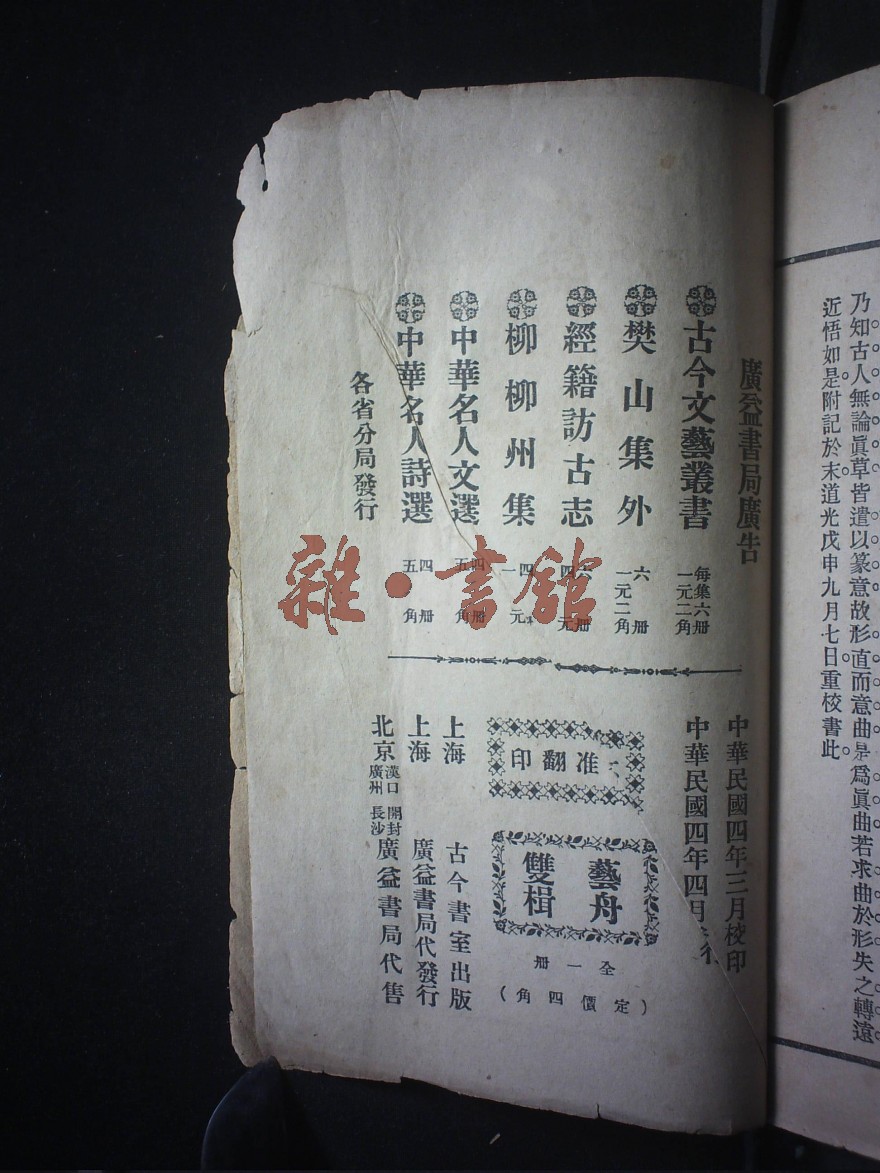 乃知古人無論眞草皆遣以篆意故形直而意曲是爲眞曲若求曲於形失之轉遠
近悟如是附記於末道光戊申九月七日重校書此。
廣益書局廣告
古今文藝叢書 每集六册 一元二角
樊山集外 六册 一元二角
經籍訪古志 六册 四元
柳柳州集 四 一元
中華名人文選 四册 五角
中華名人詩選 四册 五角
各省分局發行
中華民國四年三月校印
中華民國四年四月
准翻印
藝舟
雙楫
全一册
（定價四角）
上海 古今書室出版
上海 廣益書局代發行
北京 漢口 廣州 開封 長沙 廣益書局代售
雜·書館